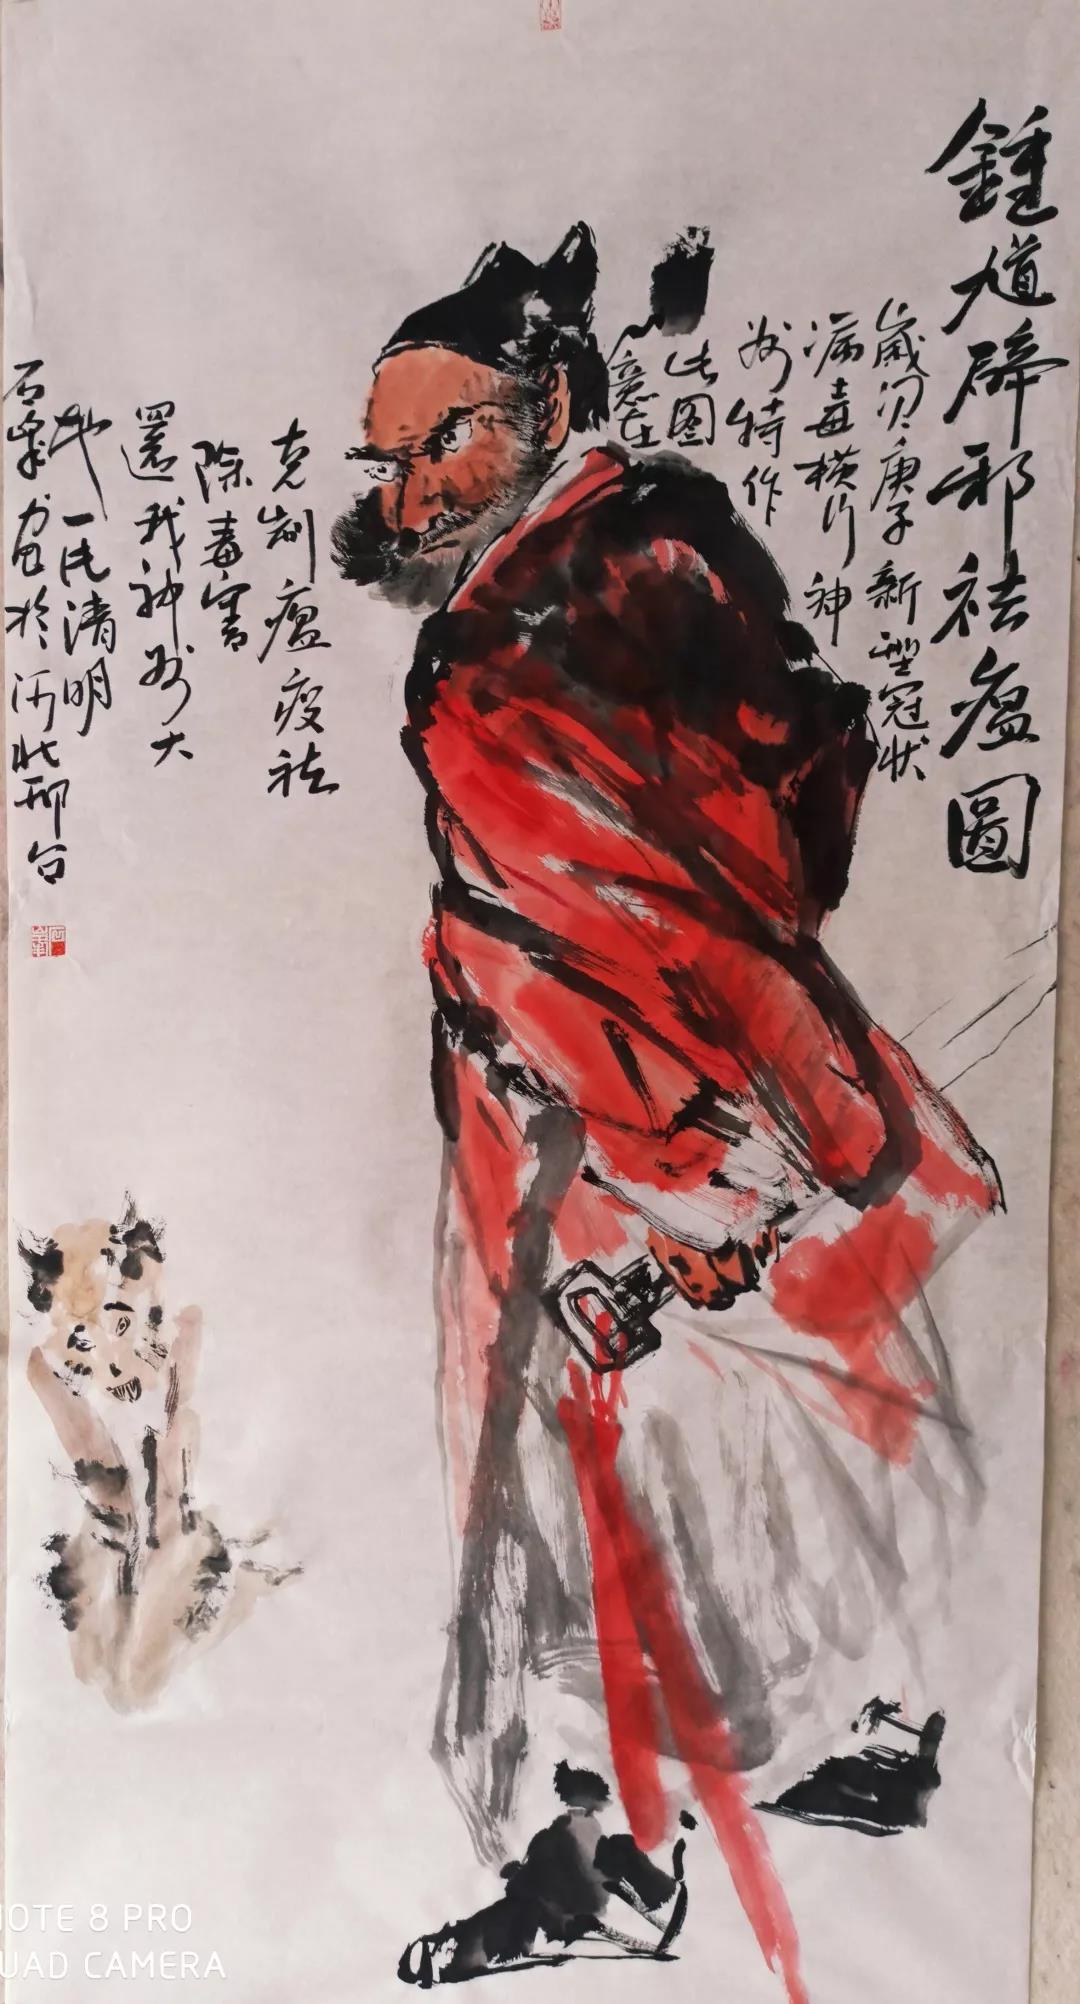 鍾馗辟邪祛瘟圖
歲次庚子新型冠狀
病毒横行神
州特作
此图
意在
克制瘟疫祛
除毒害
還我神州大
地一片清明
石泉画於河北邢台
NOTE 8 PRO
QUAD CAMERA